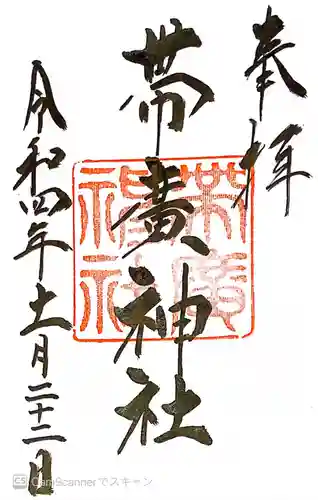 奉拝
帯廣神社
帯廣神社
令和四年十一月二十二日
CS CamScannerでスキャン